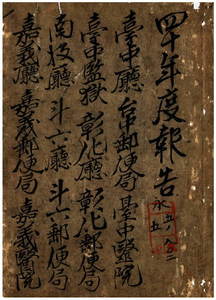 四十年度報告
永五
臺中廳 台中郵便局 臺中醫院
臺中監獄 彰化廳 彰化郵便局
南投廳 斗六廳 斗六郵便局
嘉義廳 嘉義郵便局 嘉義醫院